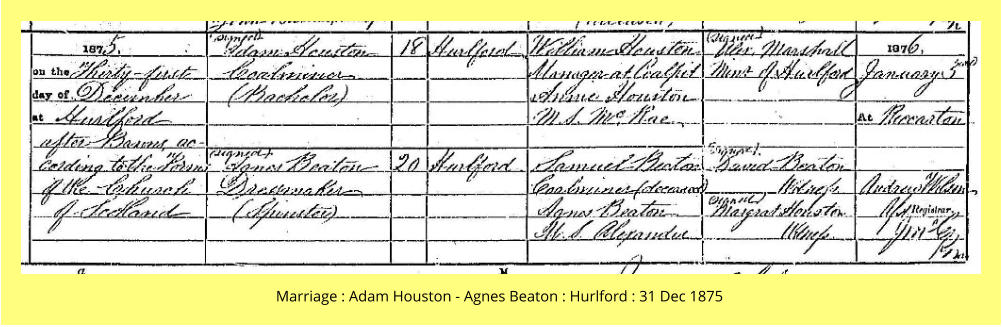 1875. (Signed) Adam Houston 18 Hurlford William Houston (Signed) Alex. Marshall 1876
on the Thirty-first Coalminer Manager at Coalpit Minr. of Hurlford January 3rd
day of December (Bachelor) Annie Houston
at Hurlford M.S. McRae At Riccarton
after Banns, ac-
cording to the Forms (Signed) Agnes Beaton 20 Hurlford Samuel Beaton (Signed) David Beaton
of the Church Dressmaker Coalminer (deceased) Witness Andrew Wilson
of Scotland (Spinster) Agnes Beaton (Signed) Margrat Houston Registrar
M.S. Alexander Witness
Marriage : Adam Houston - Agnes Beaton : Hurlford : 31 Dec 1875